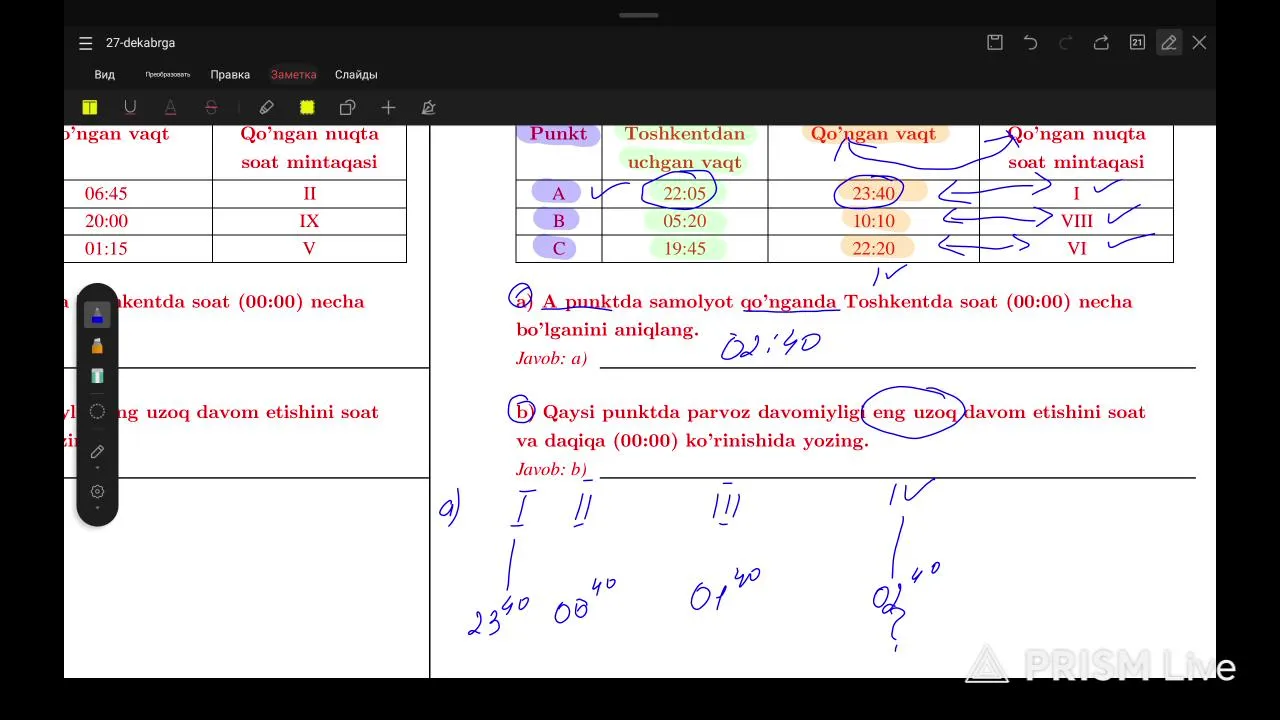 27-dekabrga
21
Вид Преобразовать Правка Заметка Слайды
T U A S
o'ngan vaqt Qo'ngan nuqta soat mintaqasi
06:45 II
20:00 IX
01:15 V
kentda soat (00:00) necha
ng uzoq davom etishini soat
Punkt Toshkentdan uchgan vaqt Qo'ngan vaqt Qo'ngan nuqta soat mintaqasi
A 22:05 23:40 I
B 05:20 10:10 VIII
C 19:45 22:20 VI
IV
a) A punktda samolyot qo'nganda Toshkentda soat (00:00) necha
bo'lganini aniqlang.
02:40
Javob: a)
b) Qaysi punktda parvoz davomiyligi eng uzoq davom etishini soat
va daqiqa (00:00) ko'rinishida yozing.
Javob: b)
a) I II III IV
23 40 00 40 01 40 02 40
?
PRISM Live